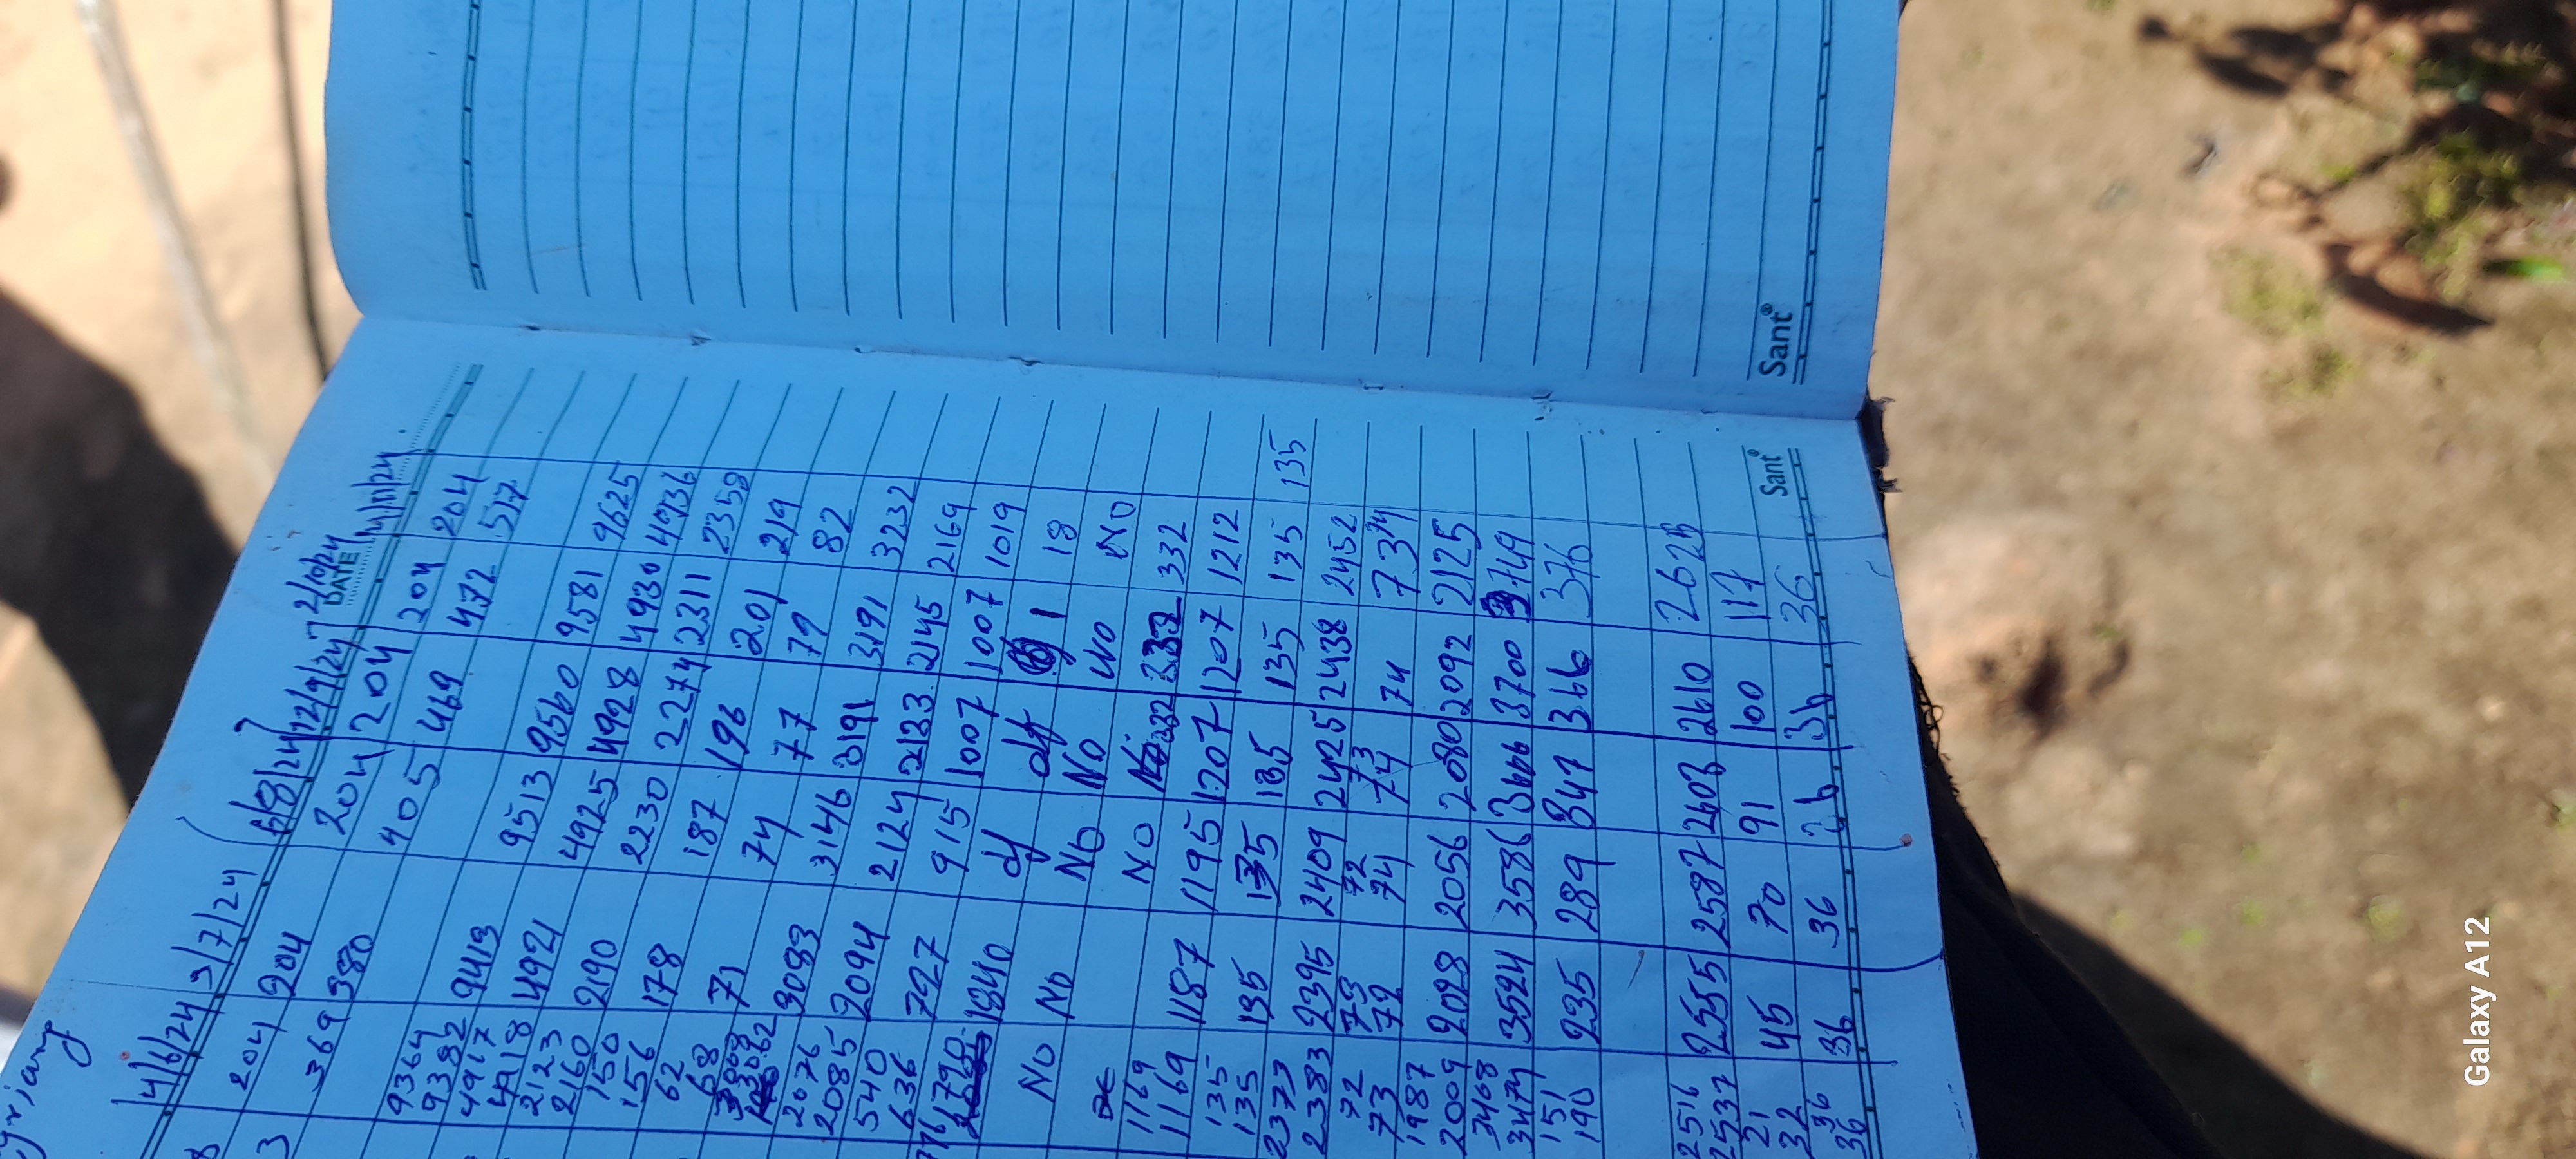 4/6/24 3/7/24 6/8/24 12/9/24 2/10/24 14/11/24
DATE
204 204 204 204 204 204
369 380 405 469 472 517
9364
9382 9413 9513 9560 9581 9625
4917
4918 4921 4925 4928 4930 4936
2123
2160 2190 2230 2274 2311 2358
150
156 178 187 196 201 219
62
68 71 74 77 79 82
3083 3146 3191 3191 3232
2076
2085 2094 2124 2133 2145 2169
540
636 727 915 1007 1007 1019
df df 1 18
No No No No No No
No 332 332 332
1169
1169 1187 1195 1207 1207 1212
135
135 135 135 135 135 135 135
2373
2383 2395 2409 2425 2438 2452
72 73 72 73 73 74
73 72 74 74 74
1987
2009 2028 2056 2080 2092 2125
3468
3474 3524 3586 3666 3700 3749
151
190 235 289 347 366 376
2516
2537 2555 2587 2603 2610 2625
21
32 45 70 91 100 117
36
36 36 36 36 36 36
Sant
Sant
Galaxy A12